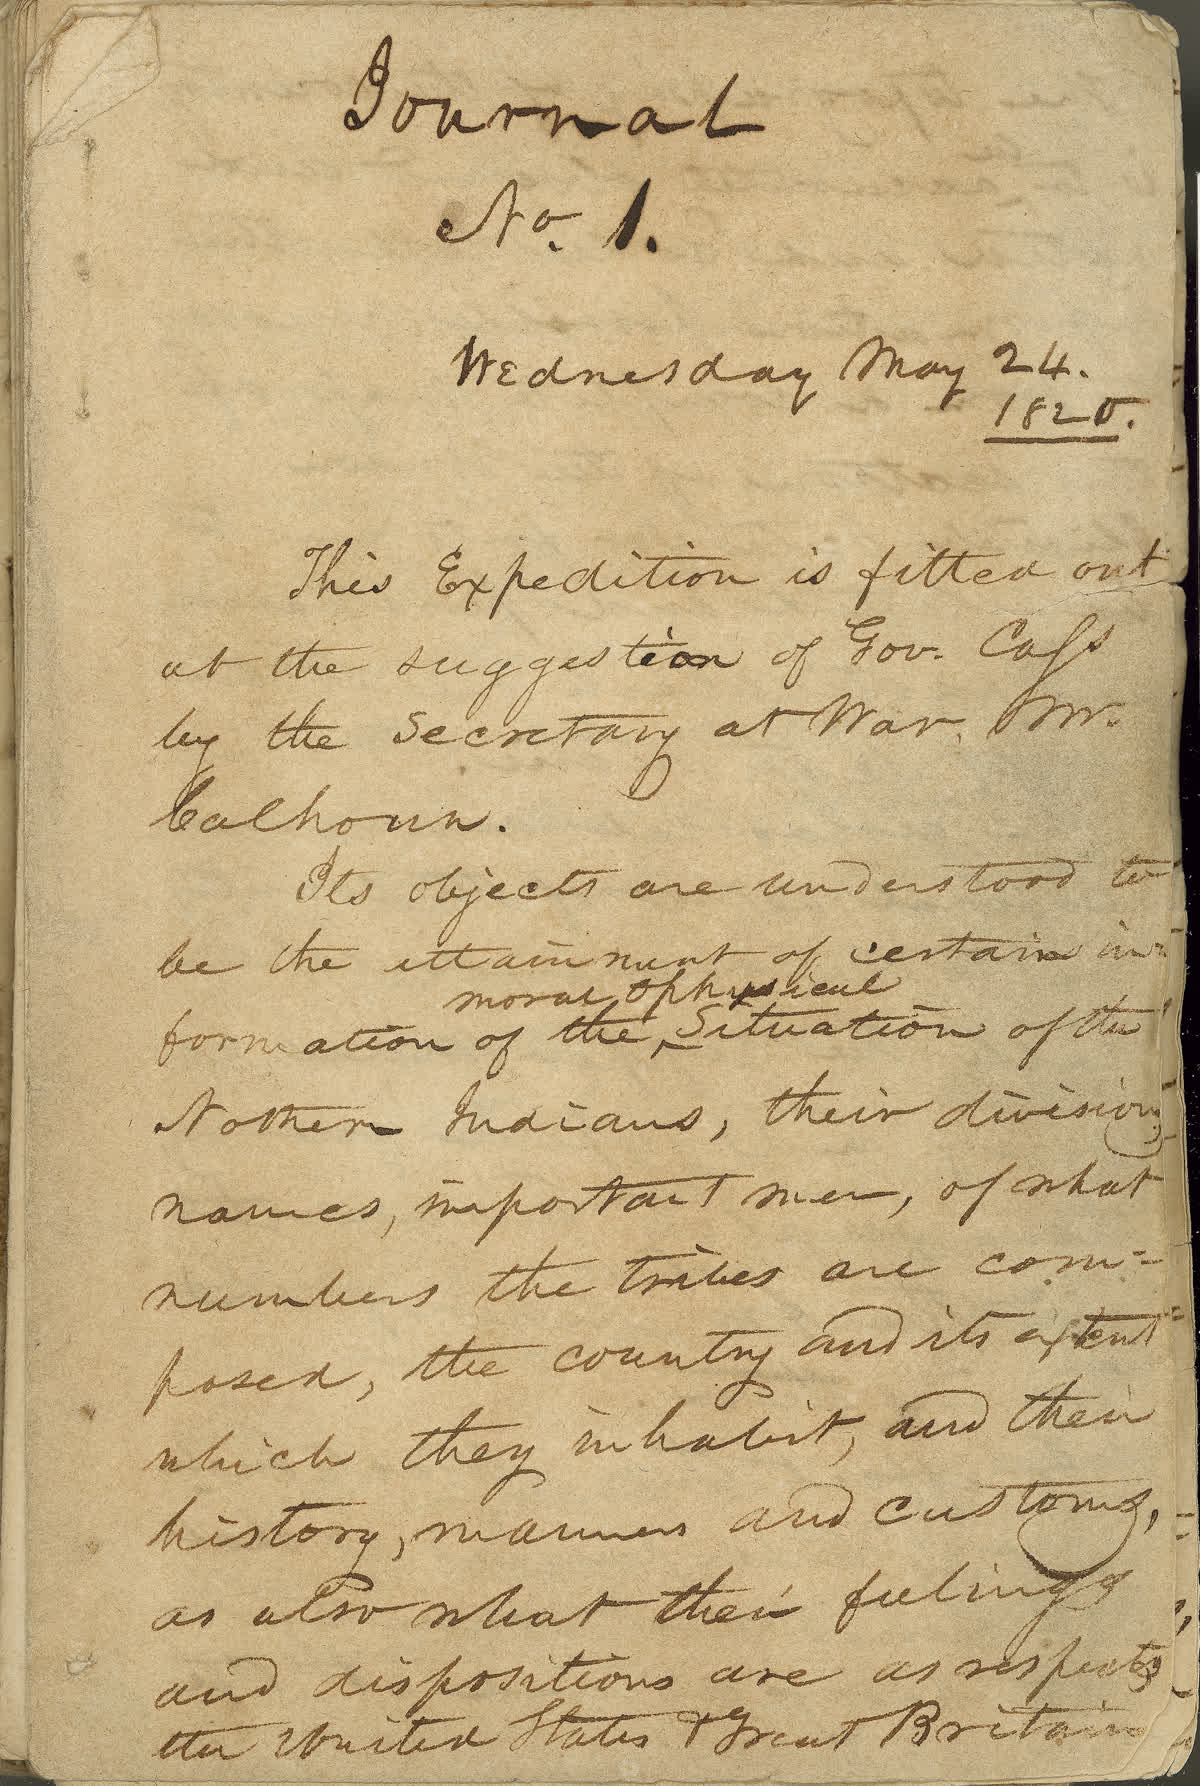 Journal
No. 1.
Wednesday May 24.
1820.
This Expedition is fitted out
at the suggestion of Gov. Cass
by the Secretary at War. Mr.
Calhoun.
Its objects are understood to
be the attainment of certain in-
moral & physical
formation of the ^ Situation of the
Nothern Indians, their divisions,
names, important men, of what
numbers the tribes are com=
posed, the country and its extent
which they inhabit, and their
history, manners and customs,
as also what their feelings
and dispositions are as respects
the United States & Great Britain